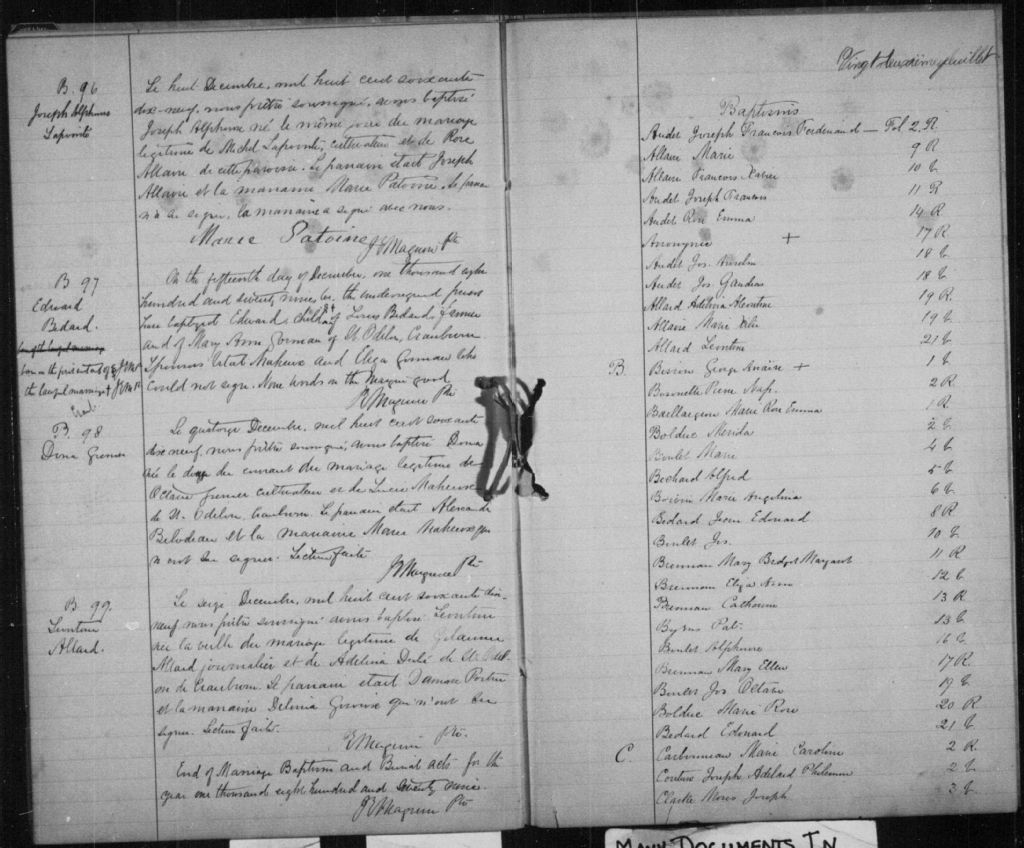 B. 96
Joseph Alphonse
Lapointe
Le huit Decembre, mil huit cent soixante
dix-neuf, nous prêtre soussigné, avons baptisé
Joseph Alphonse né le même jour du mariage
legitime de Michel Lapointe, cultivateur et de Rose
Allaire de cette paroisse. Le parrain etait Joseph
Allaire et la marraine Marie Patoine. Le parrain
n'a su signer, la marraine a signé avec nous.
Marie Patoine J E Maguire Ptr
B 97
Edward
Bedard.
born on the
the lawful marriage
On the fifteenth day of December, one thousand eight
hundred and seventy nine, the undersigned priest
have baptized Edward, child of Louis Bedard, farmer
and of Mary Ann Gorman of St Odilon, Cranbourne.
Sponsors Vital Maheux and Eliza Gorman who
could not sign. Nine words in the margin good.
J E Maguire Ptr
B. 98
Dona Grenier
Le quatorze Decembre, mil huit cent soixante
dix neuf, nous prêtre soussigné, avons baptisé Dona
née le du courant du mariage legitime de
Octave Grenier cultivateur et de Lucie Maheux
de St. Odilon, Cranbourne. Le parrain etait Alexandre
Bilodeau et la marraine Marie Maheux qui
n'ont su signer. Lecture faite
J E Maguire Ptr
B. 99.
Leontine
Allard.
Le seize Decembre, mil huit cent soixante dix-
neuf nous prêtre soussigné avons baptisé Leontine
née la veille du mariage legitime de
Allard journalier et de Adelina Dulé de St. Odil-
on de Cranbourne. Le parrain etait Damase Poulin
et la marraine Delima qui n'ont su
signer. Lecture faite.
J E Maguire Ptr.
End of Marriage Baptisms and Burial acts for the
year one thousand eight hundred and seventy nine.
J E Maguire Ptr
Vingt deuxième feuillet
Baptisms
Audet Joseph Francois Ferdinand — Fol 2. R
Allaire Marie 9 R
Allaire Francois Xavier 10 V.
Audet Joseph Francois 11 R
Audet Rose Emma 14 R
Anonyme + 17 R.
Audet Jos. Anselm 18 V.
Audet Jos. Gaudias 18 V.
Allard Adelina Leontine 19 R.
Allaire Marie 19 V.
Allard Leontine 21 V.
B. Bisson George Anaire + 1 V.
Boronette Pierre Nap. 2 R.
Baillargeon Marie Rose Emma 1 R
Bolduc Merida 2 V.
Boulet Marie 4 V.
Bechard Alfred 5 V.
Boivin Marie Angelina 6 V.
Bedard Jean Edouard 8 R
Boulet Jos. 10 V.
Brennan Mary Bridget Margaret 11 R
Brennan Eliza Ann 12 V.
Brennan Catherine 13 R
Byrns Pat. 13 V.
Boulet Alphonse 16 V.
Brennan Mary Ellen 17 R.
Boulet Jos Octave 19 V.
Bolduc Marie Rose 20 R
Bedard Edouard 21 V.
C. Carbonneau Marie Caroline 2 R.
Couture Joseph Adelard Philemon 2 V.
Clarke Moses Joseph 3 V.
MANY DOCUMENTS IN